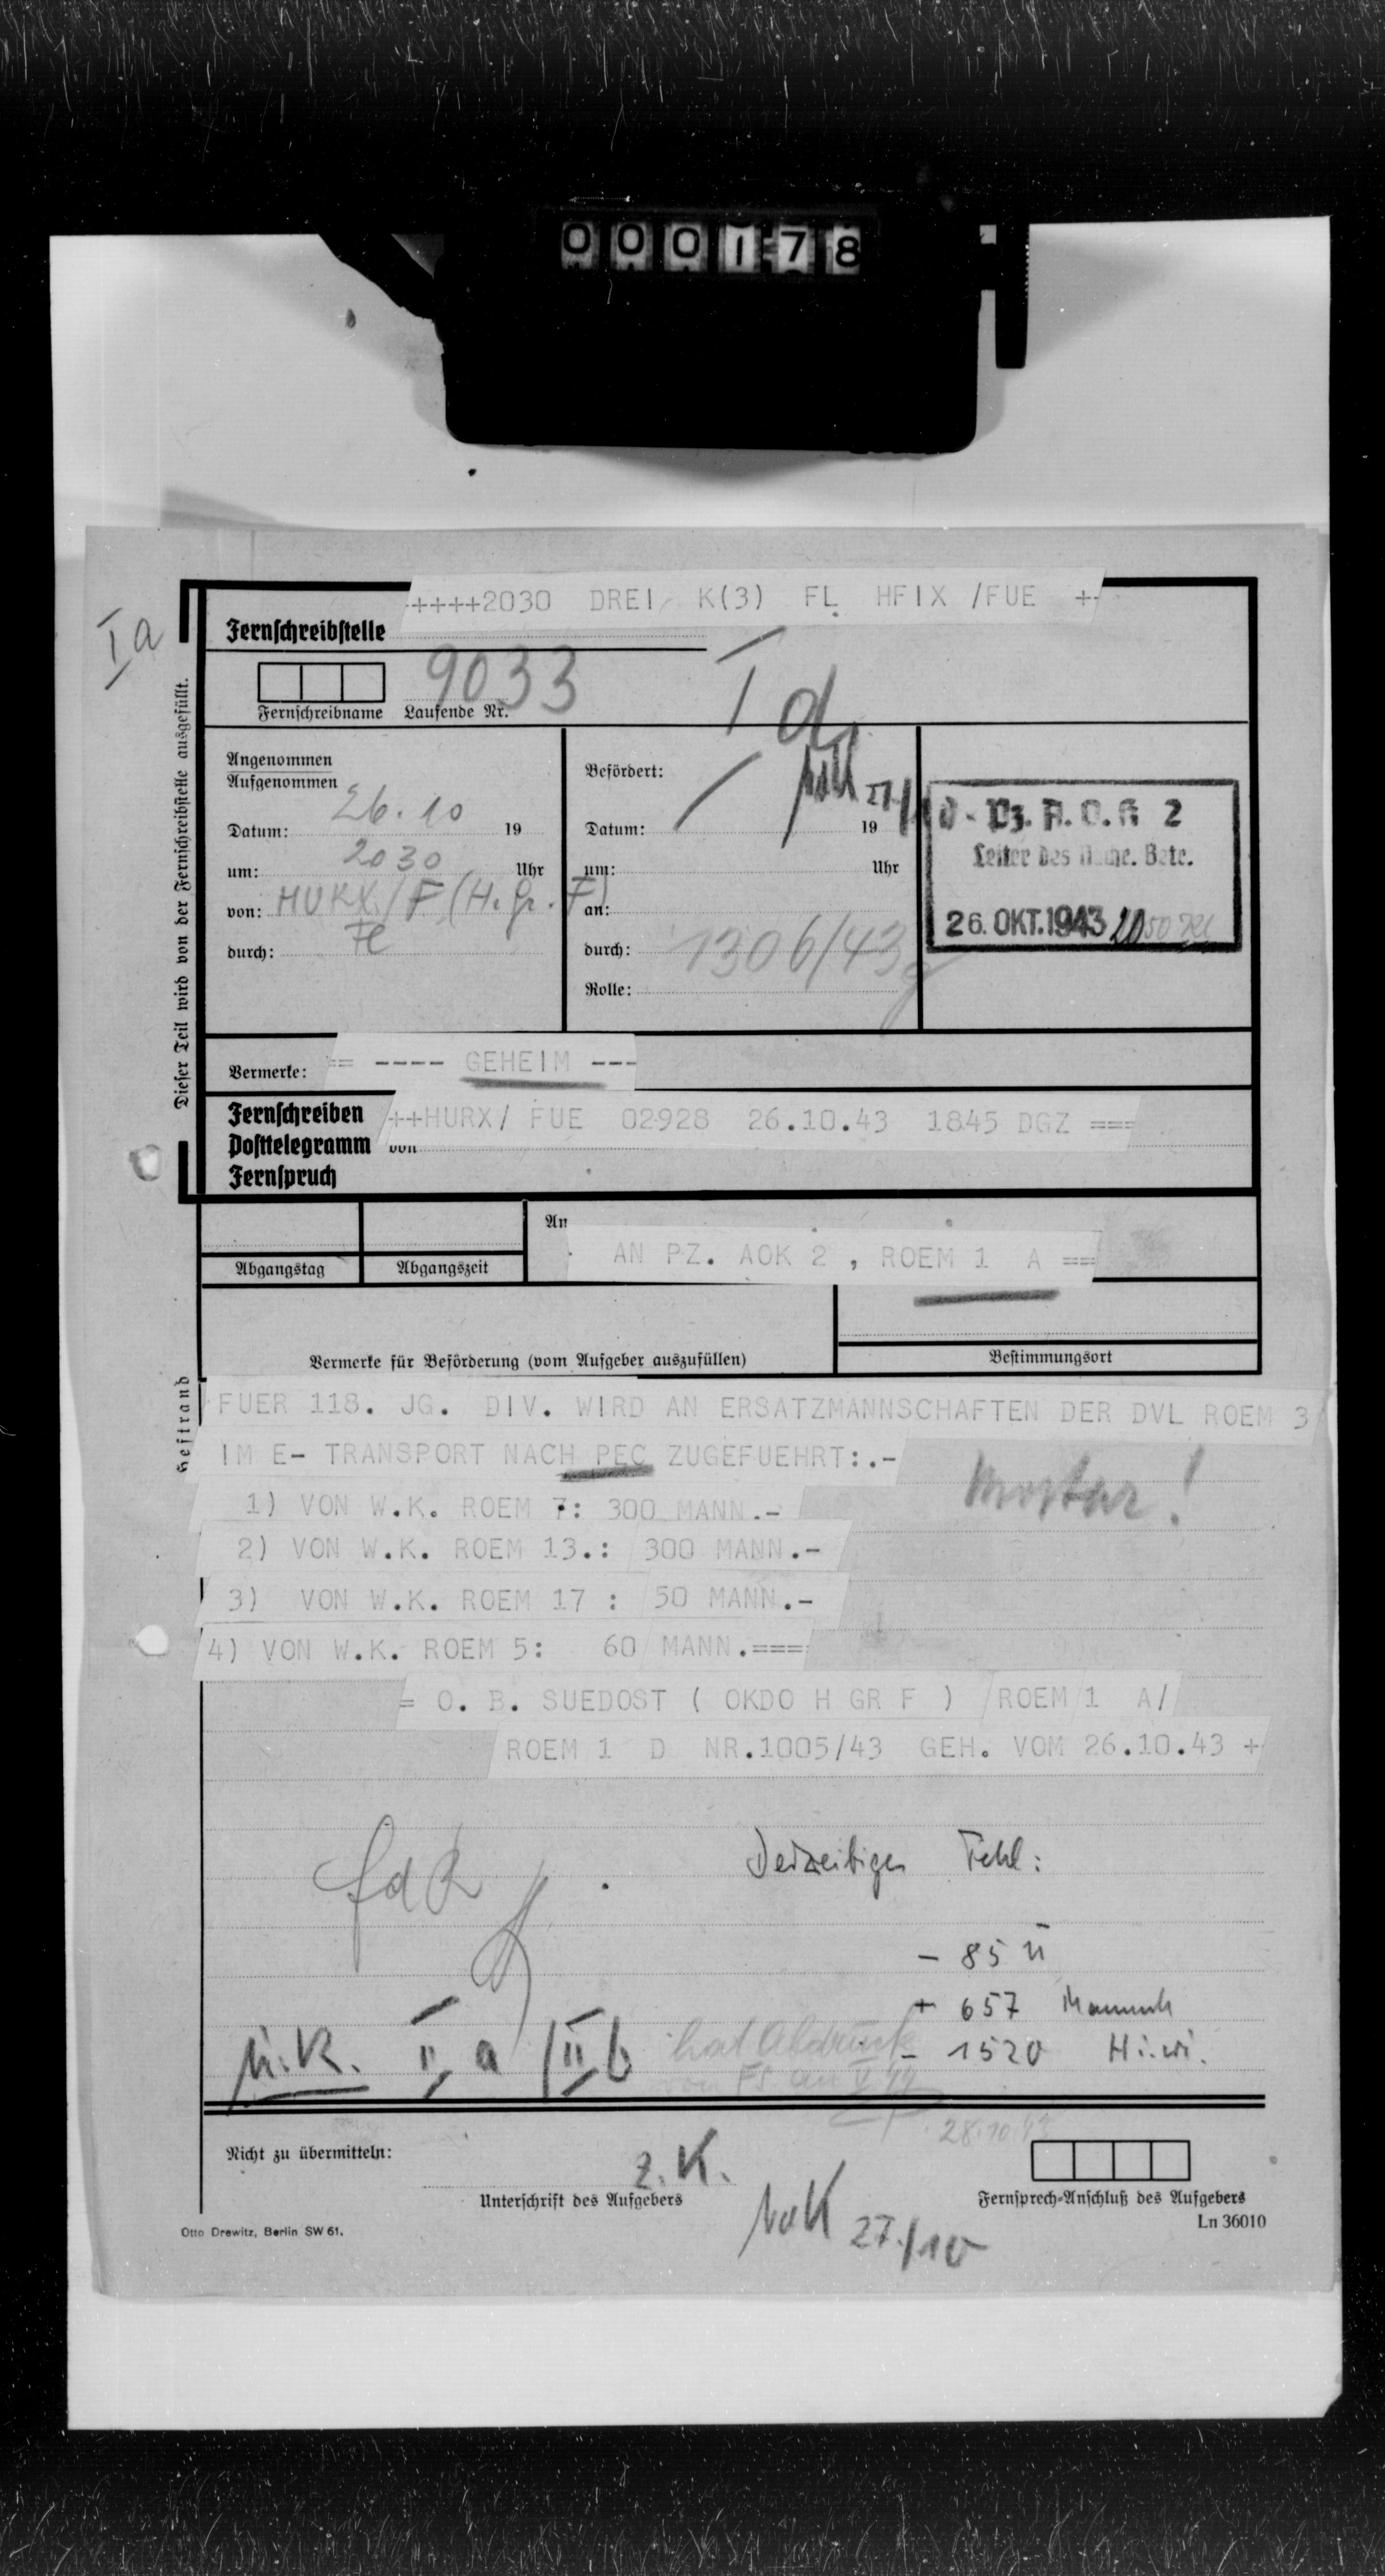 000178
++++2030 DREI K(3) FL HFIX /FUE +-
Ia
Fernschreibstelle
9033
I d
Fernschreibname Laufende Nr.
Dieser Teil wird von der Fernschreibstelle ausgefüllt.
Angenommen
Aufgenommen
Datum: 26.10 19
um: 2030 Uhr
von: HURX/F (H.Gr.F)
durch: Fe
Befördert:
Datum: 19
um: Uhr
an:
durch: 1306/43 g
Rolle:
Pz. A.O.K 2
Leiter des Betr.
26. OKT. 1943 2050
Vermerke: == ---- GEHEIM ---
Fernschreiben
Posttelegramm von
Fernspruch
++HURX/ FUE 02928 26.10.43 1845 DGZ ===
An
AN PZ. AOK 2 , ROEM 1 A ==
Abgangstag Abgangszeit
Vermerke für Beförderung (vom Aufgeber auszufüllen)
Bestimmungsort
Heftrand
FUER 118. JG. DIV. WIRD AN ERSATZMANNSCHAFTEN DER DVL ROEM 3
IM E- TRANSPORT NACH PEC ZUGEFUEHRT:.-
Mostar!
1) VON W.K. ROEM 7: 300 MANN.-
2) VON W.K. ROEM 13.: 300 MANN.-
3) VON W.K. ROEM 17 : 50 MANN.-
4) VON W.K. ROEM 5: 60 MANN.===
= O. B. SUEDOST ( OKDO H GR F ) ROEM 1 A/
ROEM 1 D NR.1005/43 GEH. VOM 26.10.43 +
fdR
Derzeitiges Fehl:
- 85 U
+ 657 Mannsch
- 1520 Hi.wi.
n.R. IIa/IIb
hat Abdruck
von FS an
28.10.43
Nicht zu übermitteln:
z.K.
Unterschrift des Aufgebers
27./10
Fernsprech-Anschluß des Aufgebers
Otto Drewitz, Berlin SW 61.
Ln 36010